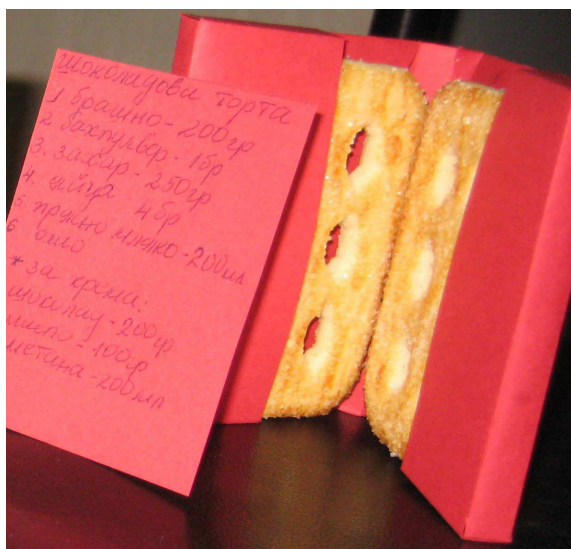 Шоколадови торта
1 брашно - 200гр
2 бакпулвер - 1бр
3. захар - 250гр
4. яйца 4бр
5. прясно мляко - 200мл
6 олио
* за крема:
шоколад - 200гр
масло - 100гр
метана - 200мл